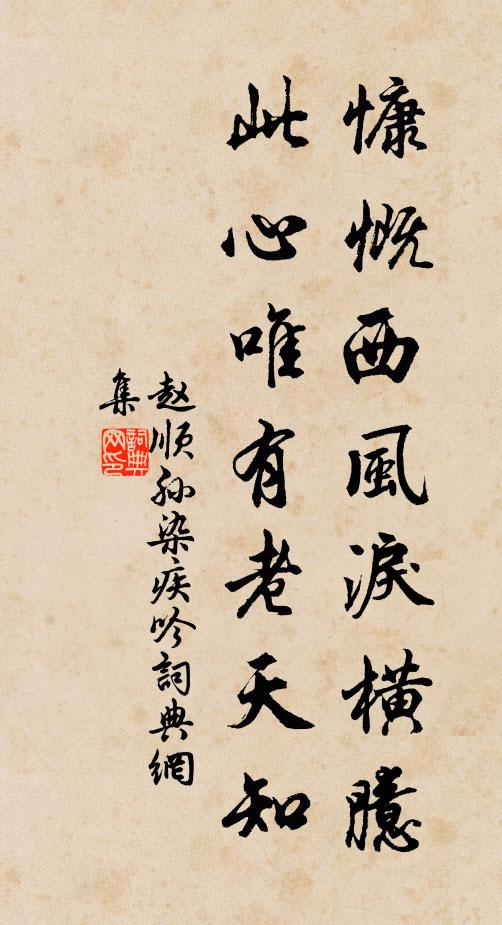 慷慨西風淚橫臆
此心唯有老天知
赵順孙染疾吟詞典網
集
詞典
网印